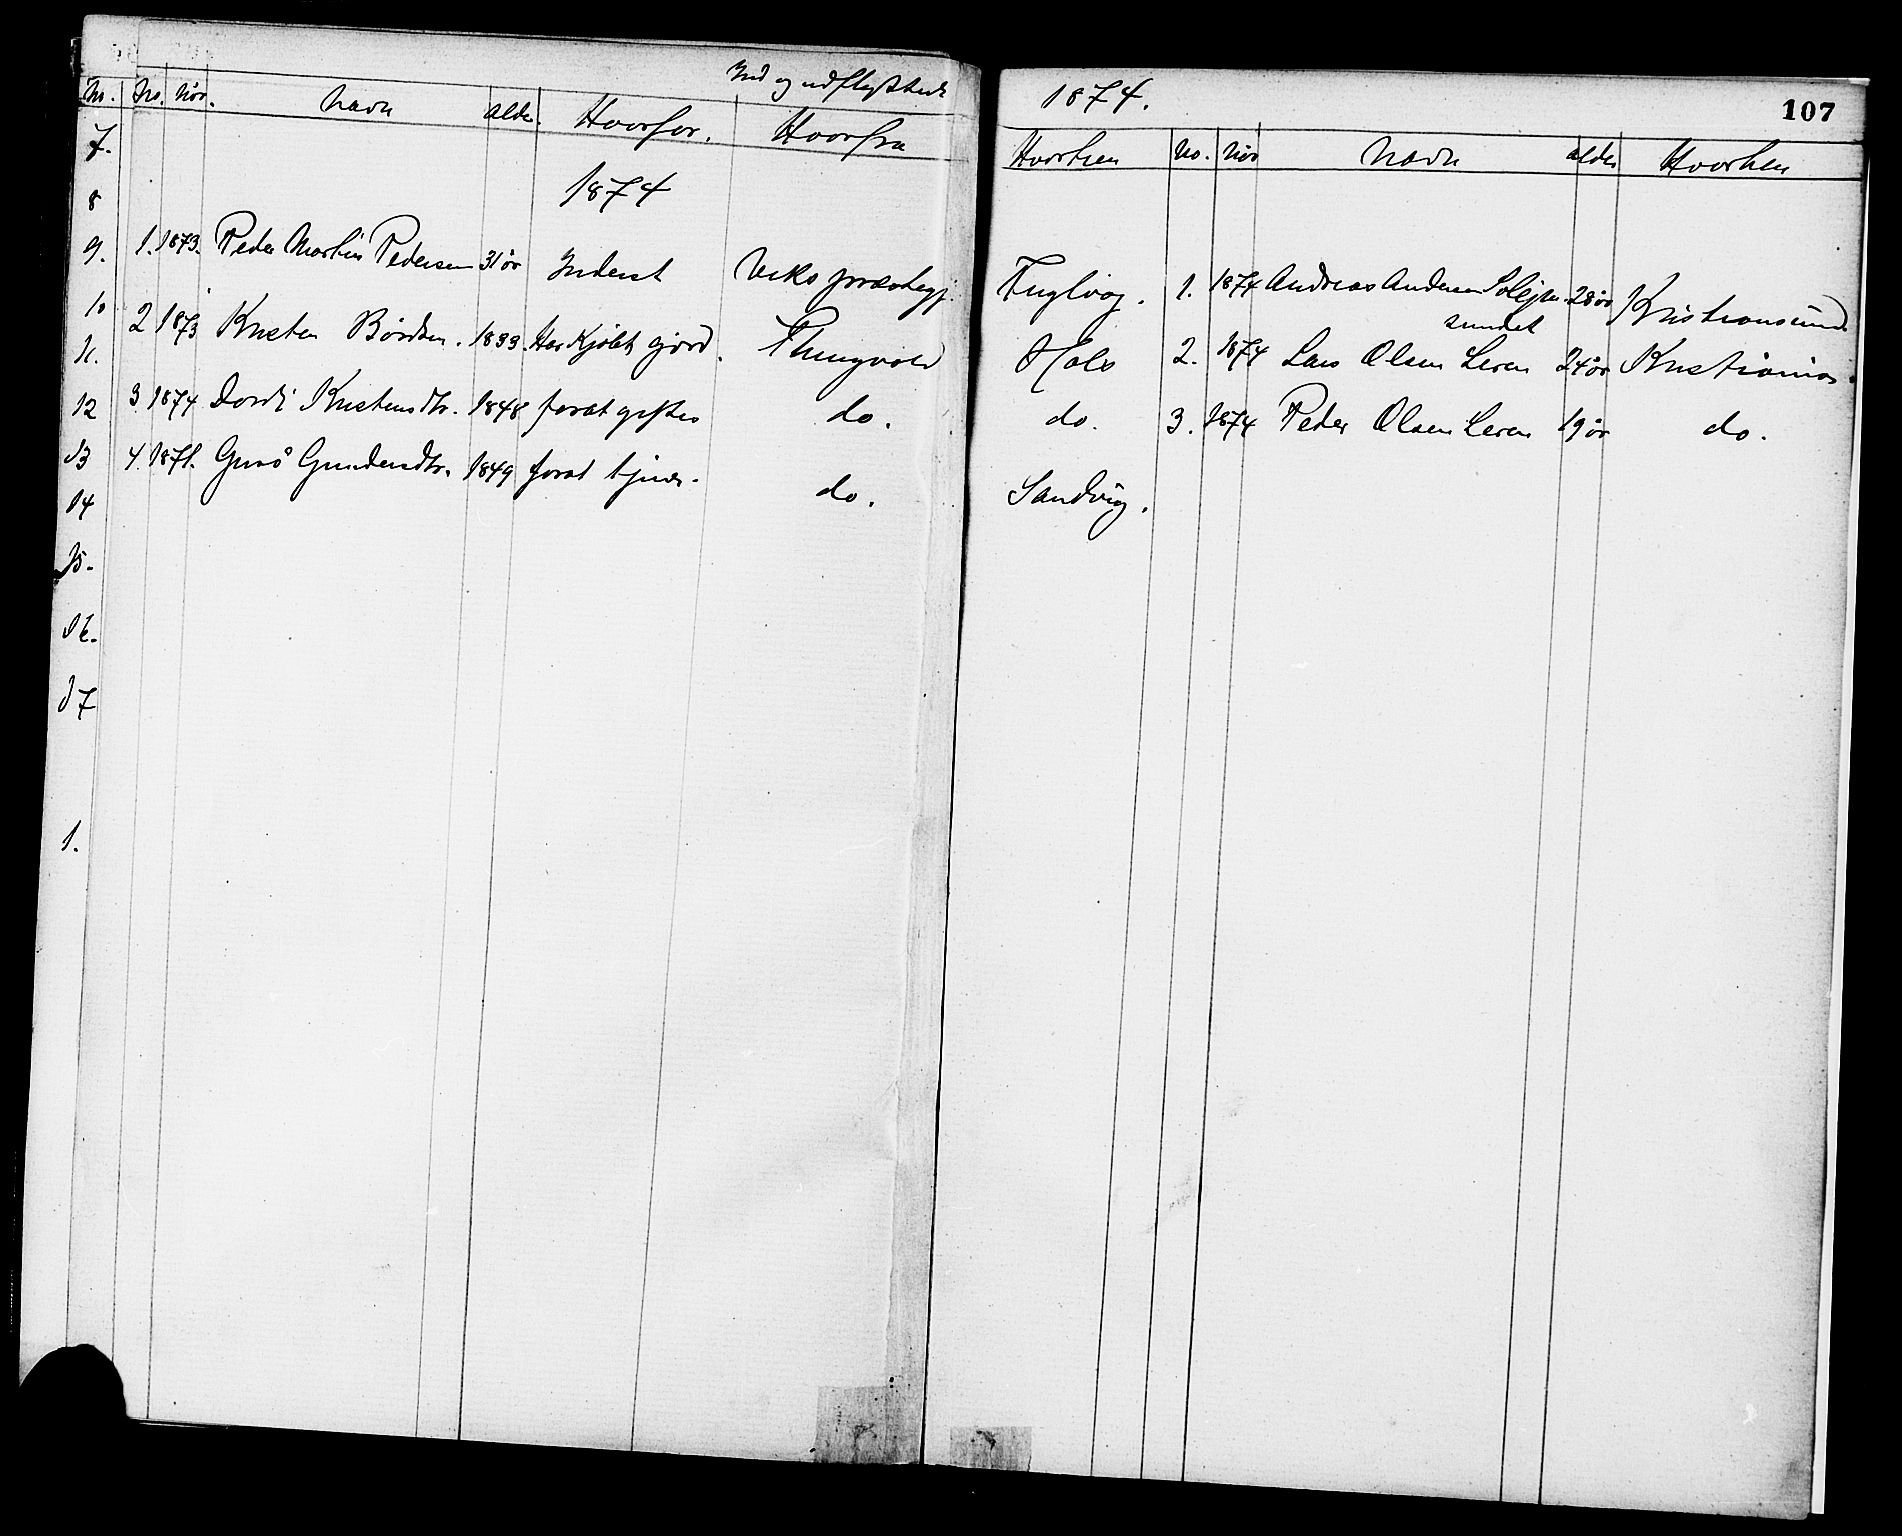 Ind og udflyttede 1874. 107
No. No. Naar. Navn Alder. Hvorfor. Hvorfra Hvorhen No. Naar Navn alder Hvorhen
7.
1874
8
9. 1. 1873. Peder Martin Pedersen 31 år Inderst Veks præstegj. Fuglvåg. 1. 1874 Andreas Andersen Solejm- 28 år Kristiansund
sundet
10 2 1873 Kristen Bårdsen. 1833. Har Kjøbt gård. Thingvold Hals 2. 1874 Lars Olsen Leren 24 år Kristiania.
11.
12 3. 1874 Dordi Kristensdtr. 1848 forat giftes do. do. 3. 1874 Peder Olsen Leren 19 år do.
13 4. 1871. Guro Gundersdtr. 1849 forat tjene. do. Sandvig.
14
15.
16.
17
1.